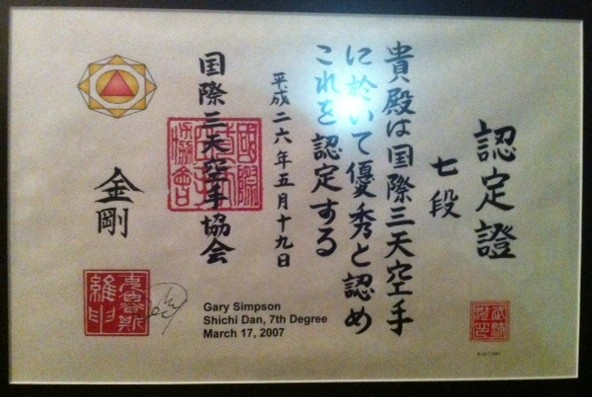 認定證
七段
貴殿は国際三天空手
に於いて優秀と認め
これを認定する
平成二六年五月十九日
国際三天空手協会
金剛
Gary Simpson
Shichi Dan, 7th Degree
March 17, 2007